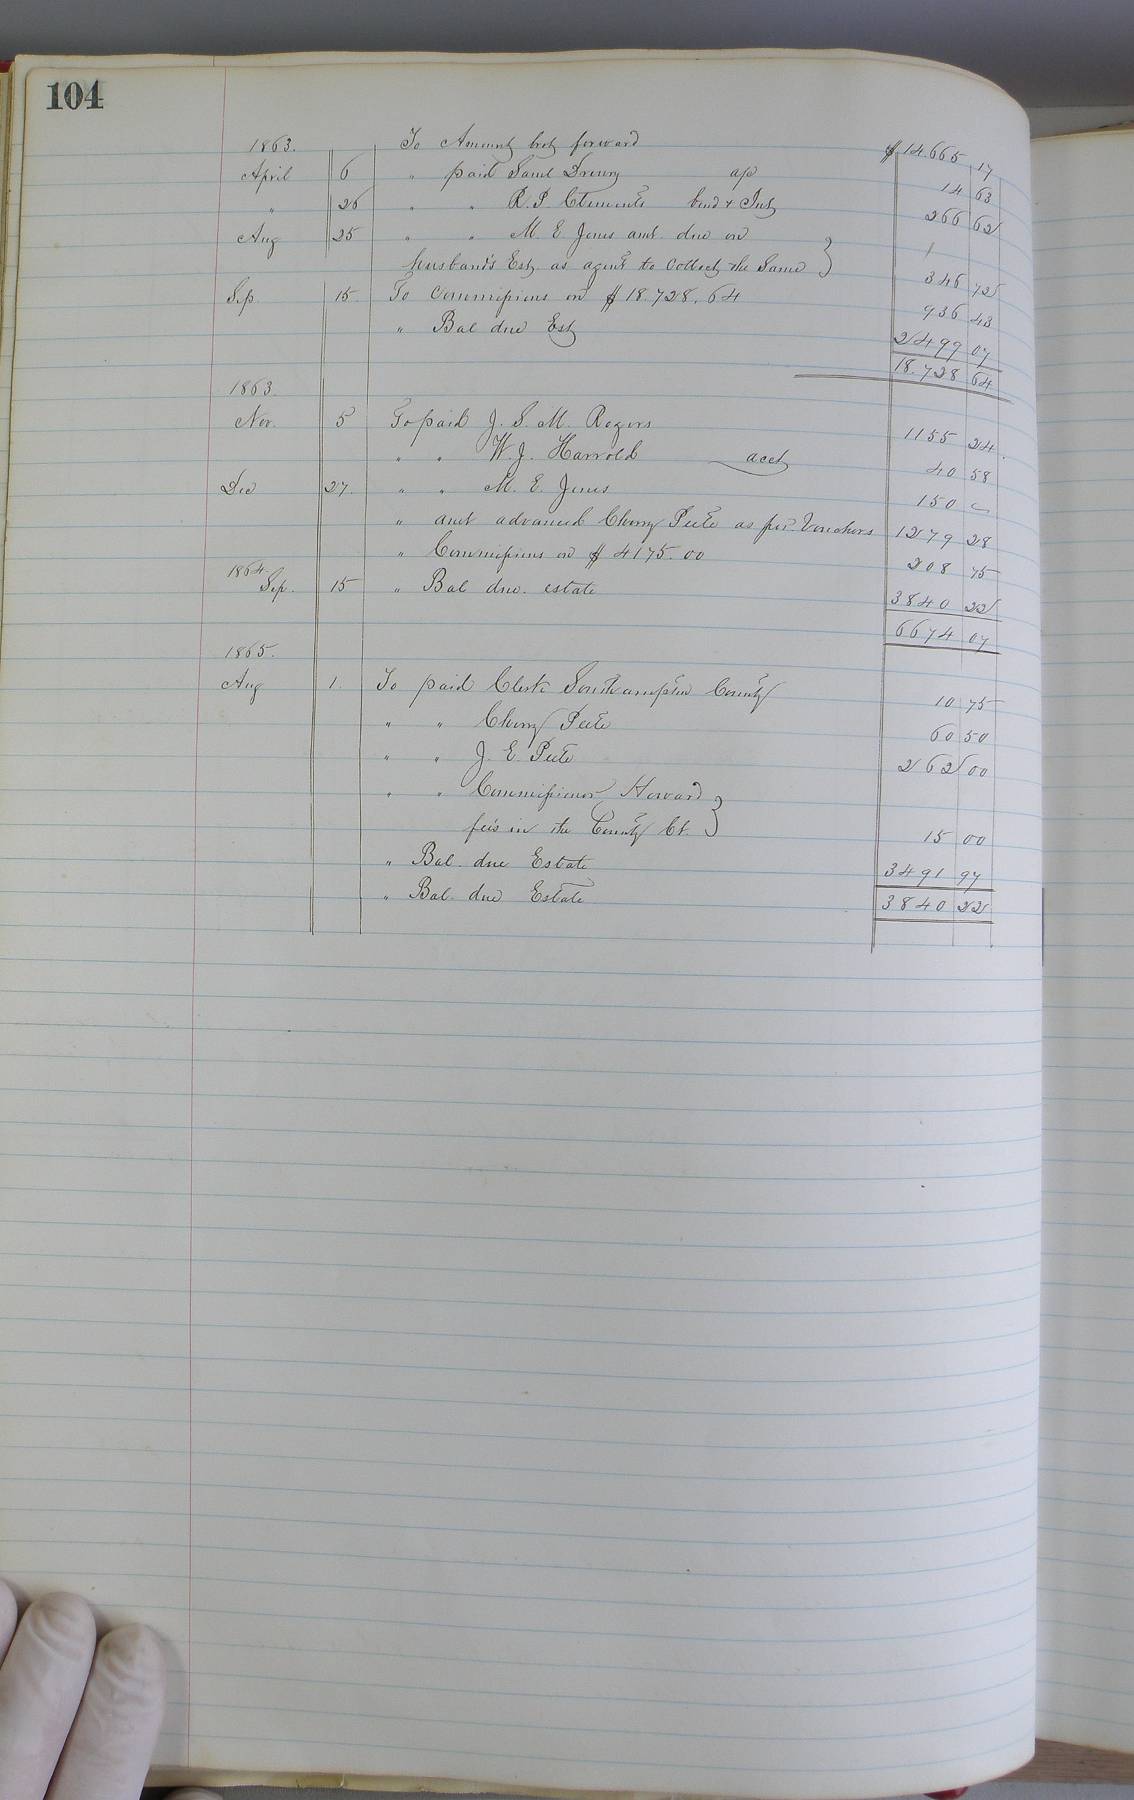 104
1863. To Amount brot forward $14.665 17
April 6 " paid Saml Drewry ap 14 63
" 26 " " R. P. Clements bond & Int 266 62
Aug 25 " " M. E. Jones amt. due on
husband's Est. as agent to collect the Same } 346 72
Sep. 15. To commissions on $18.728.64 936 43
" Bal due Est 2499 07
18.728 64
1863
Nov. 5 To paid J. S. M. Rogers 1155 24.
" " W. J. Harrold acct 40 58
Dec 27. " " M. E. Jones 150 "
" amt advanced Cherry Peete as per Vouchers 1279 28
" Commissions on $4175.00 208 75
1864.
Sep. 15 " Bal due. estate 3840 22
6674 07
1865.
Aug 1. To paid Clerk Southampton County 10 75
" " Cherry Peete 60 50
" " J. E. Peete 262 00
" " Commissioner Howard }
fees in the County Ct. } 15 00
" Bal. due Estate 3491 97
" Bal. due Estate 3840 22